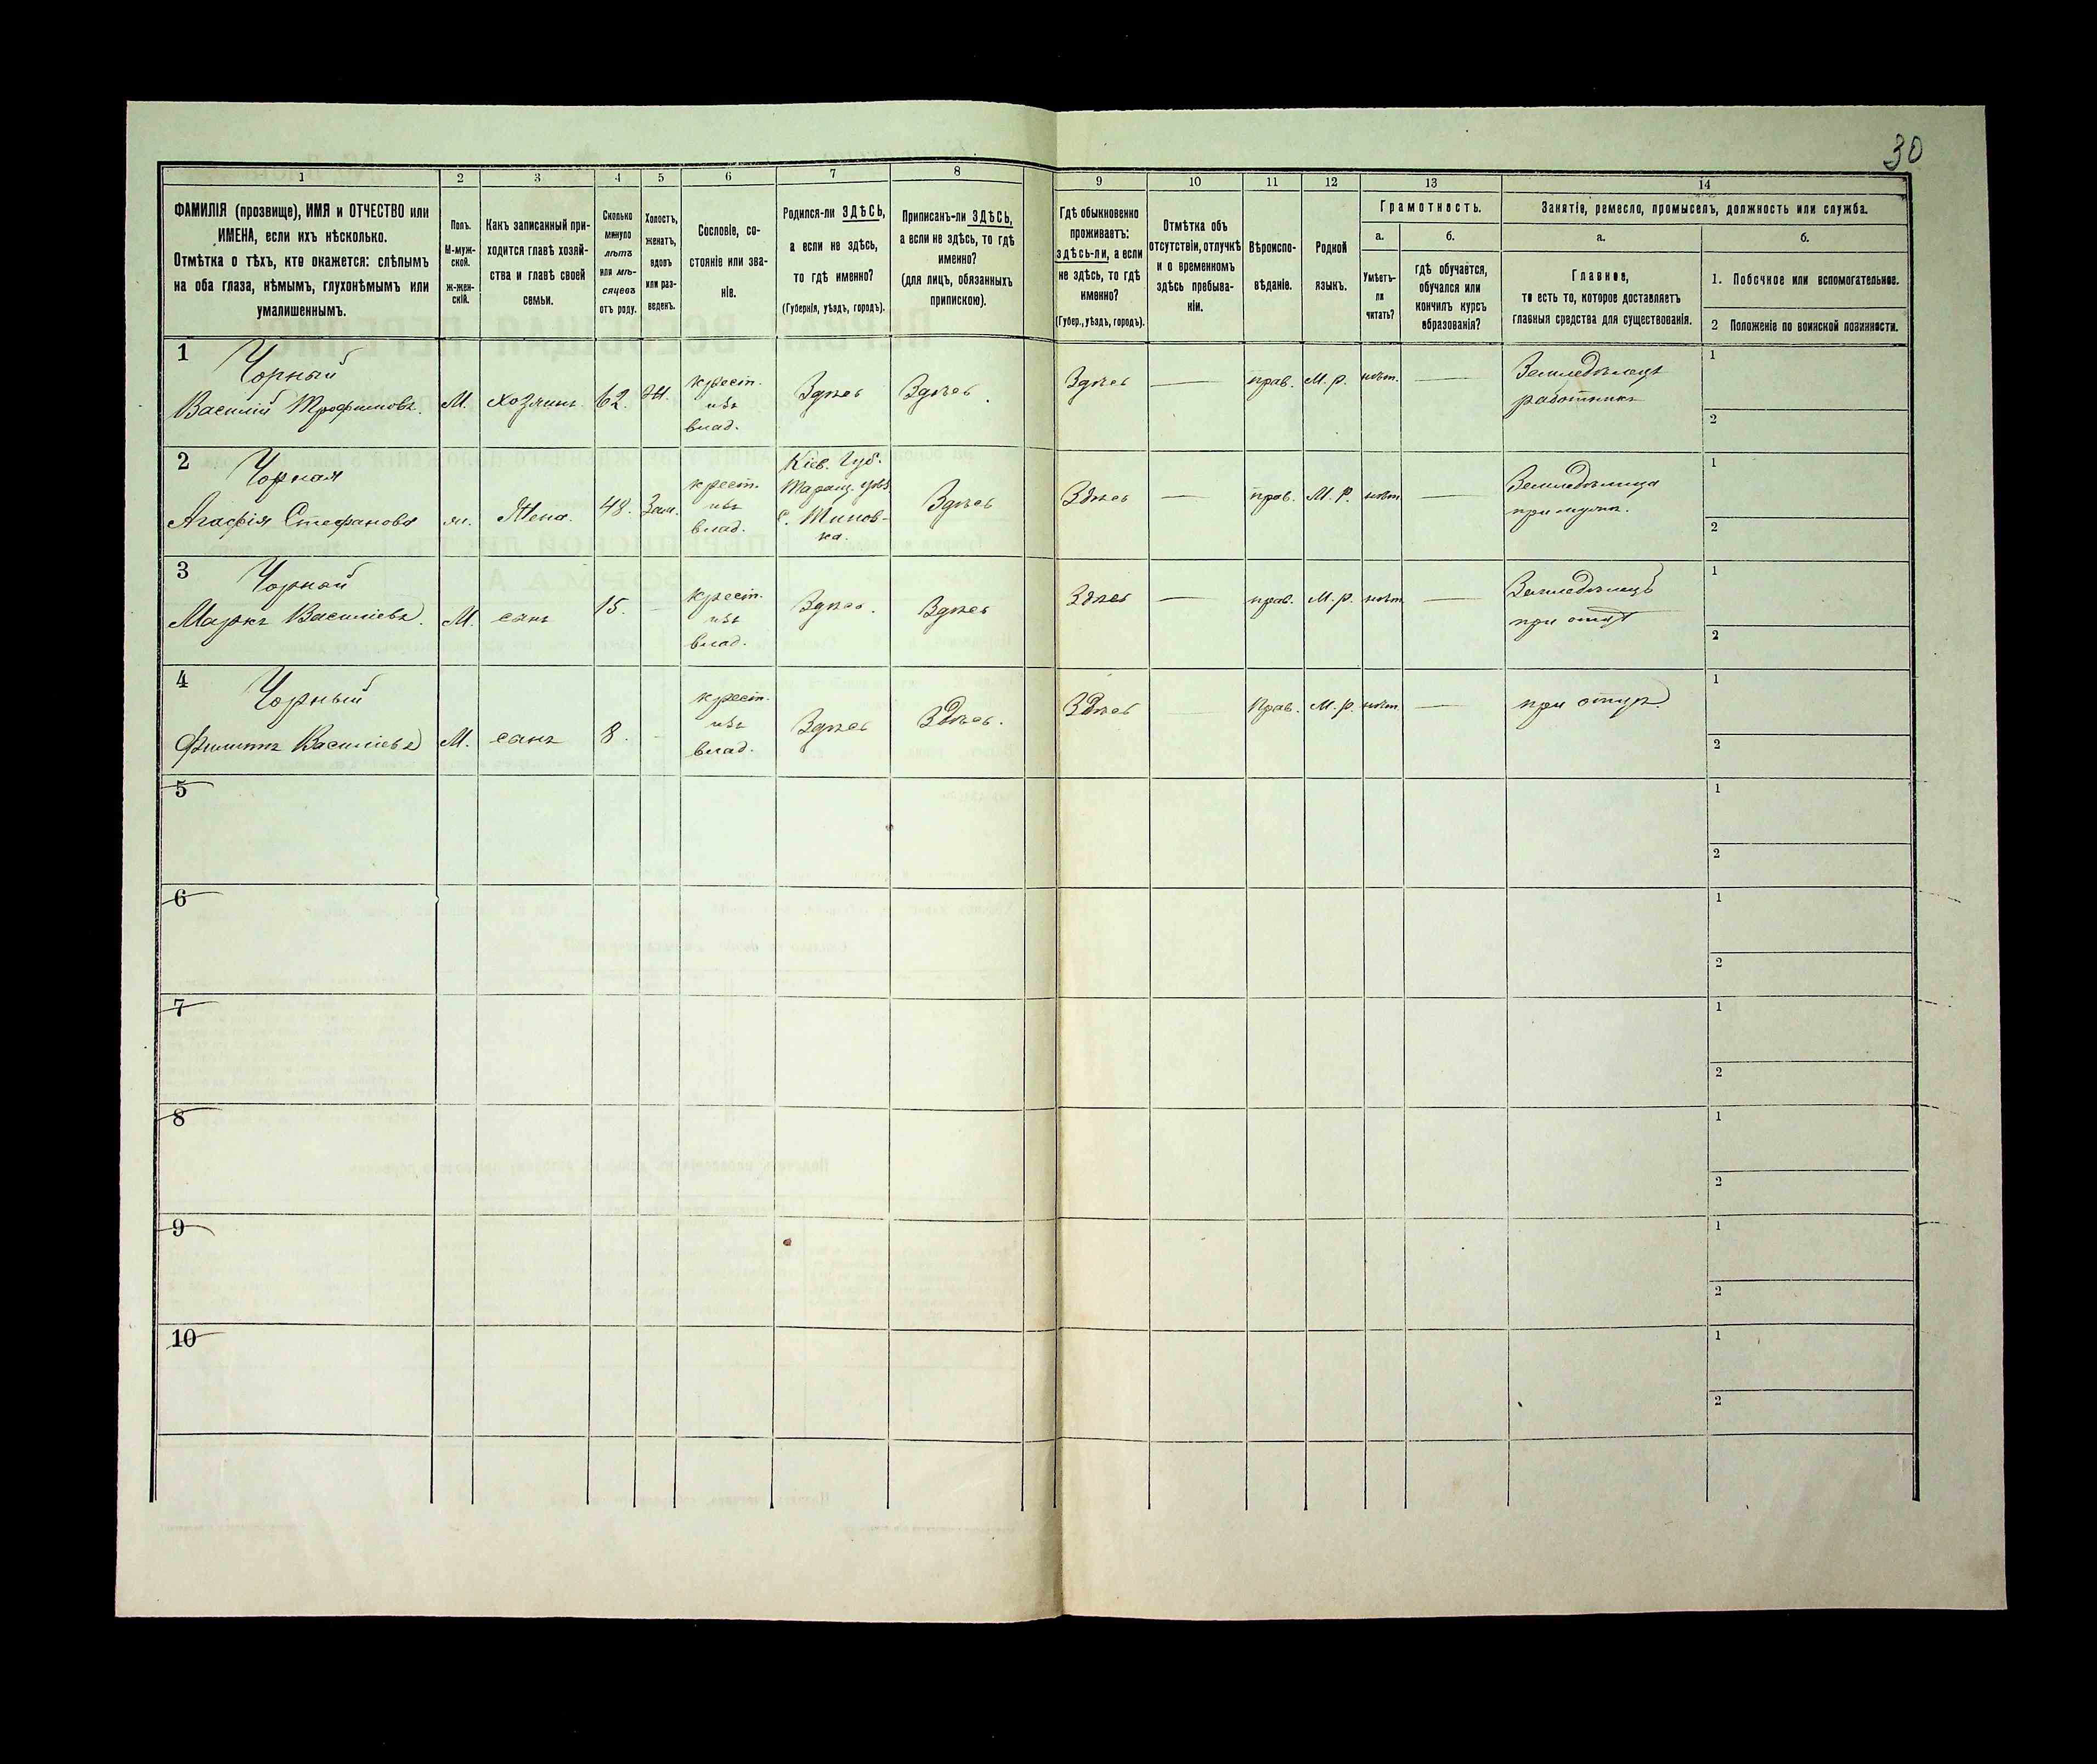 30
1
2
3
4
5
6
7
8
9
10
11
12
13
14
ФАМИЛІЯ (прозвище), ИМЯ и ОТЧЕСТВО или
ИМЕНА, если ихъ нѣсколько.
Отмѣтка о тѣхъ, кто окажется: слѣпымъ
на оба глаза, нѣмымъ, глухонѣмымъ или
умалишеннымъ.
Полъ.
М-муж-
ской.
Ж-жен-
скій.
Какъ записанный при-
ходится главѣ хозяй-
ства и главѣ своей
семьи.
Сколько
минуло
лѣтъ
или мѣ-
сяцевъ
отъ роду.
Холостъ,
женатъ,
вдовъ
или раз-
веденъ.
Сословіе, со-
стояніе или зва-
ніе.
Родился-ли ЗДѢСЬ,
а если не здѣсь,
то гдѣ именно?
(Губернія, уѣздъ, городъ).
Приписанъ-ли ЗДѢСЬ,
а если не здѣсь, то гдѣ
именно?
(для лицъ, обязанныхъ
припискою).
Гдѣ обыкновенно
проживаетъ:
здѣсь-ли, а если
не здѣсь, то гдѣ
именно?
(Губер., уѣздъ, городъ).
Отмѣтка объ
отсутствіи, отлучкѣ
и о временномъ
здѣсь пребыва-
ніи.
Вѣроиспо-
вѣданіе.
Родной
языкъ.
Грамотность.
а.
Умѣетъ-
ли
читать?
б.
гдѣ обучается,
обучался или
кончилъ курсъ
образованія?
Занятіе, ремесло, промыселъ, должность или служба.
а.
Главное,
то есть то, которое доставляетъ
главныя средства для существованія.
б.
1. Побочное или вспомогательное.
2 Положеніе по воинской повинности.
1
Чорный
Василій Трофимовъ.
М.
хозяинъ
62.
Ж.
крест.
изъ
влад.
Здѣсь
Здѣсь.
Здѣсь
—
прав.
М. р.
нѣт.
—
Земледѣлецъ
работникъ
1
2
2
Чорная
Агафія Стефанова
ж.
Жена.
48.
Зам.
крест.
изъ
влад.
Кіев. Губ.
Таращ. уѣз.
Здѣсь
Здѣсь
—
прав.
М. р.
нѣт.
—
Земледѣлица
при мужѣ.
1
2
3
Чорный
Маркъ Васильевъ.
М.
сынъ
15.
-
крест.
изъ
влад.
Здѣсь.
Здѣсь
Здѣсь
—
прав.
М. р.
нѣт.
—
Земледѣлецъ
при отцѣ
1
2
4
Чорный
Филиппъ Васильевъ
М.
сынъ
8.
-
крест.
изъ
влад.
Здѣсь
Здѣсь.
Здѣсь
—
Прав.
М. р.
нѣт.
—
при отцѣ
1
2
5
1
2
6
1
2
7
1
2
8
1
2
9
1
2
10
1
2